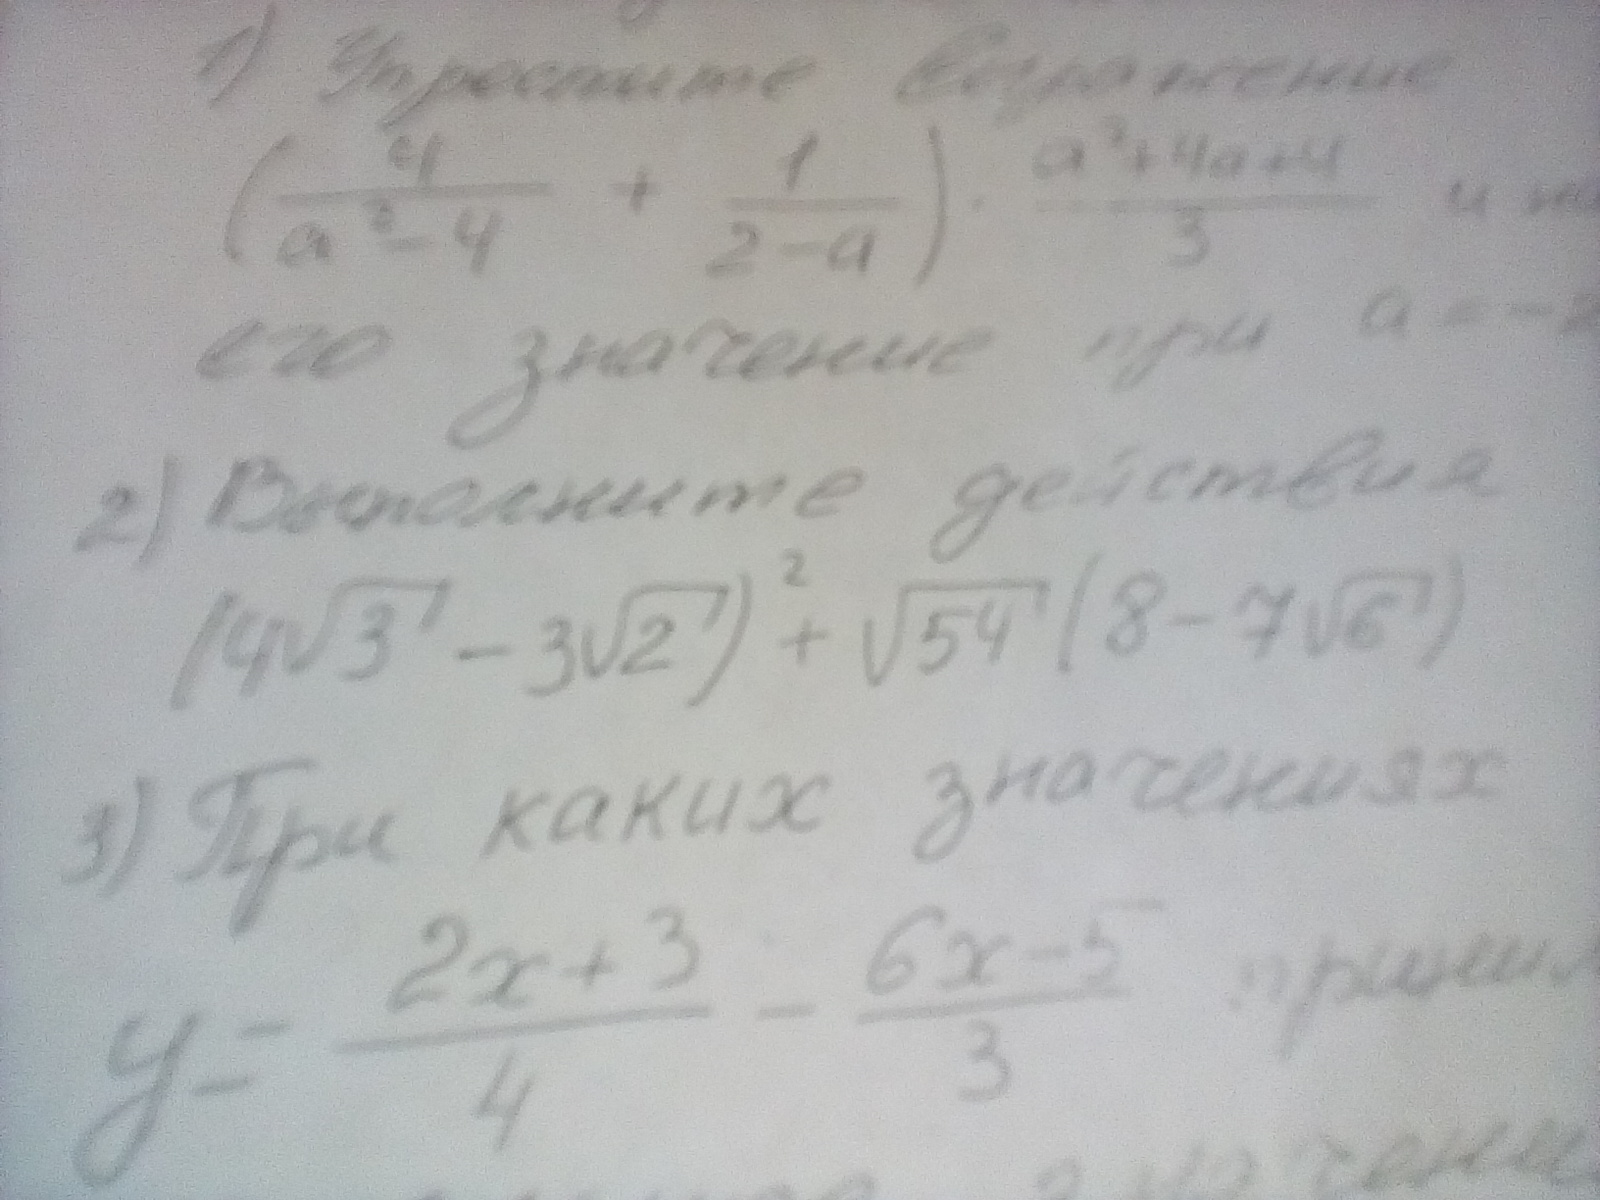 1) Упростите выражение
(4/(a²-4) + 1/(2-a)) · (a²+4a+4)/3 и
его значение при a = -
2) Выполните действия
(4√3 - 3√2)² + √54 (8 - 7√6)
3) При каких значениях
y = (2x+3)/4 - (6x-5)/3